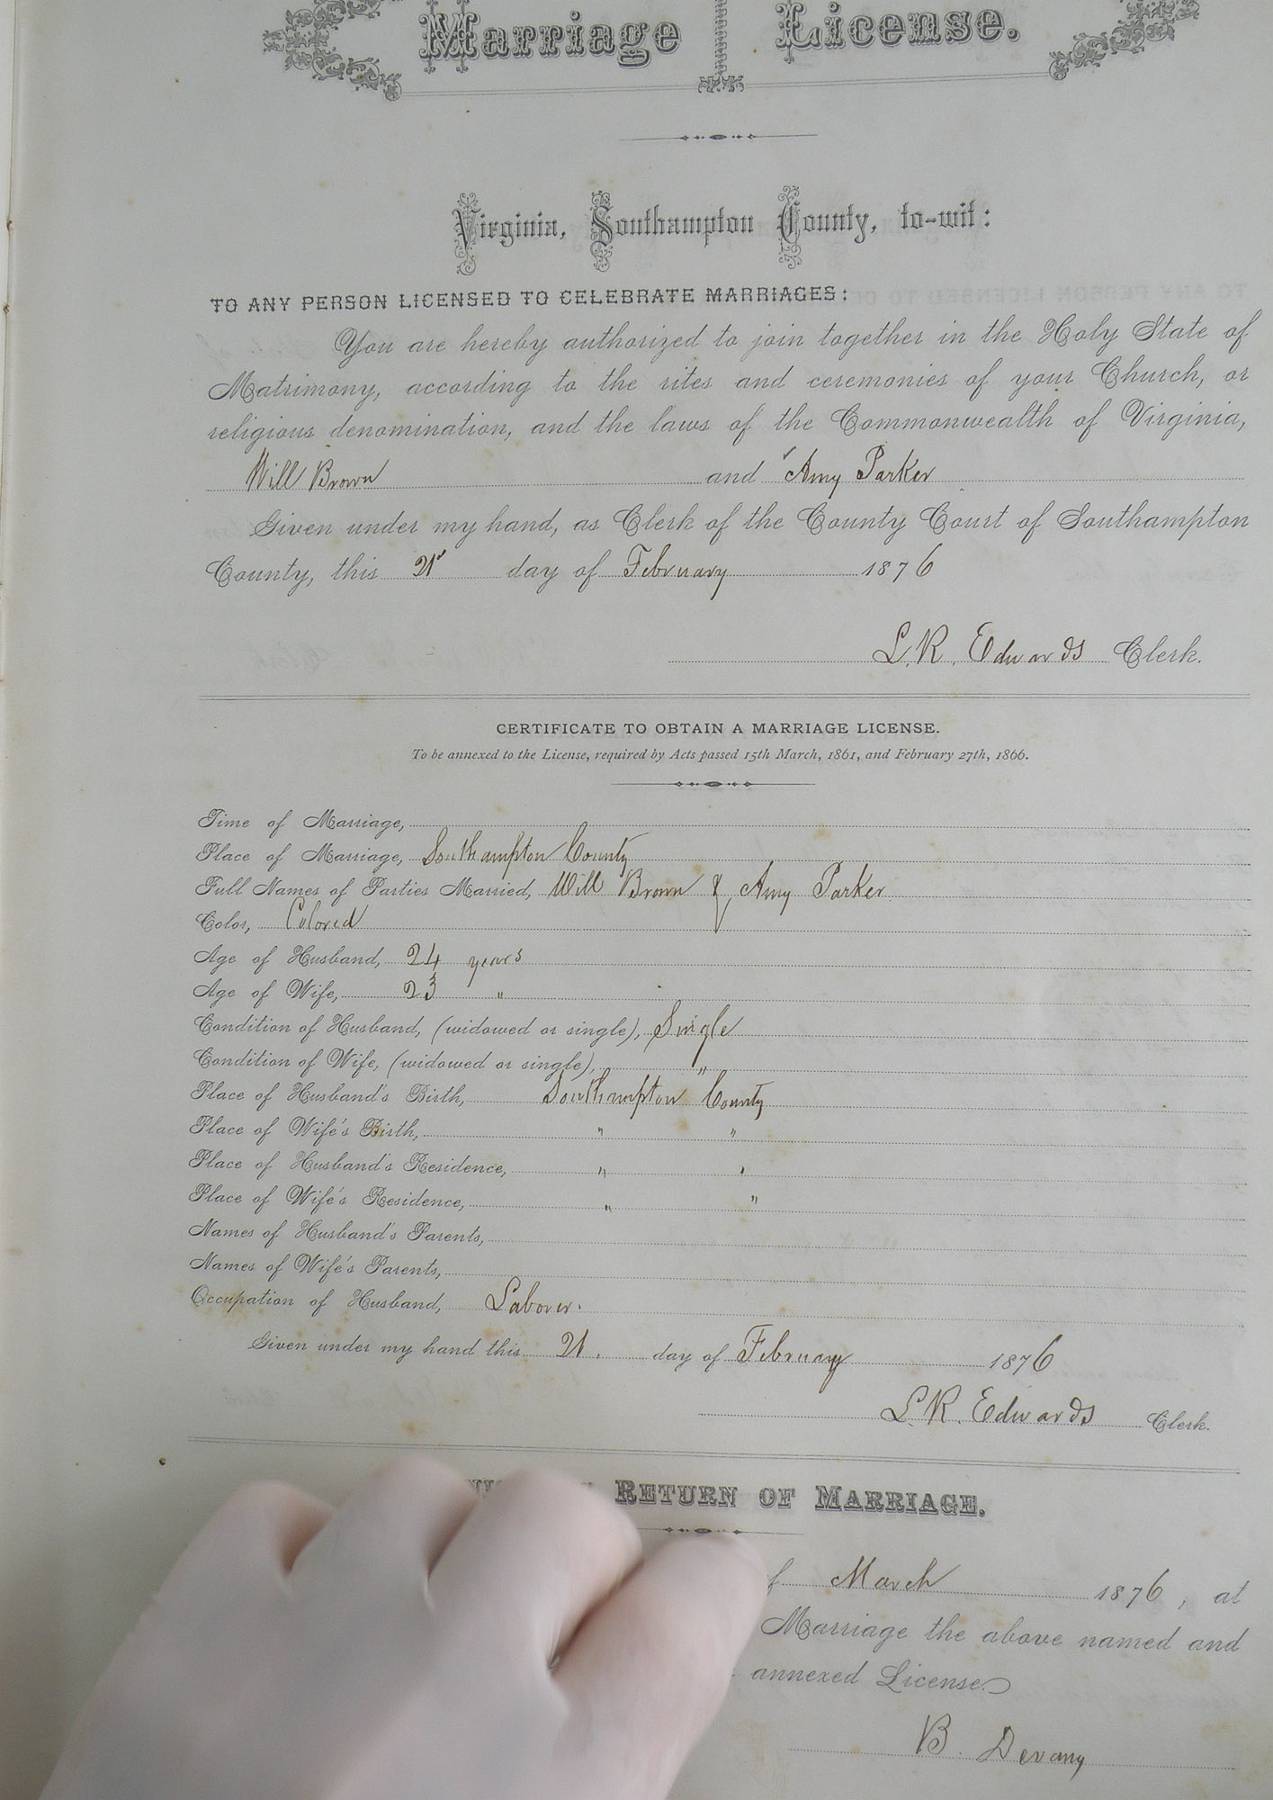 Marriage License.
Virginia, Southampton County, to-wit:
TO ANY PERSON LICENSED TO CELEBRATE MARRIAGES:
You are hereby authorized to join together in the Holy State of
Matrimony, according to the rites and ceremonies of your Church, or
religious denomination, and the laws of the Commonwealth of Virginia,
Will Brown and Amy Parker
Given under my hand, as Clerk of the County Court of Southampton
County, this 21st day of February 1876
L. R. Edwards Clerk.
CERTIFICATE TO OBTAIN A MARRIAGE LICENSE.
To be annexed to the License, required by Acts passed 15th March, 1861, and February 27th, 1866.
Time of Marriage,
Place of Marriage, Southampton County
Full Names of Parties Married, Will Brown & Amy Parker
Color, Colored
Age of Husband, 24 years
Age of Wife, 23 "
Condition of Husband, (widowed or single), Single
Condition of Wife, (widowed or single), "
Place of Husband's Birth, Southampton County
Place of Wife's Birth, " "
Place of Husband's Residence, " "
Place of Wife's Residence, " "
Names of Husband's Parents,
Names of Wife's Parents,
Occupation of Husband, Laborer.
Given under my hand this 21. day of February 1876
L. R. Edwards Clerk.
RETURN OF MARRIAGE.
March 1876, at
Marriage the above named and
annexed License.
B. Devany